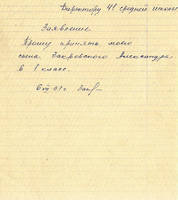 Директору 41 средней школы
Заявление
Прошу принять моего
сына Закровского Александра
в 1 класс.